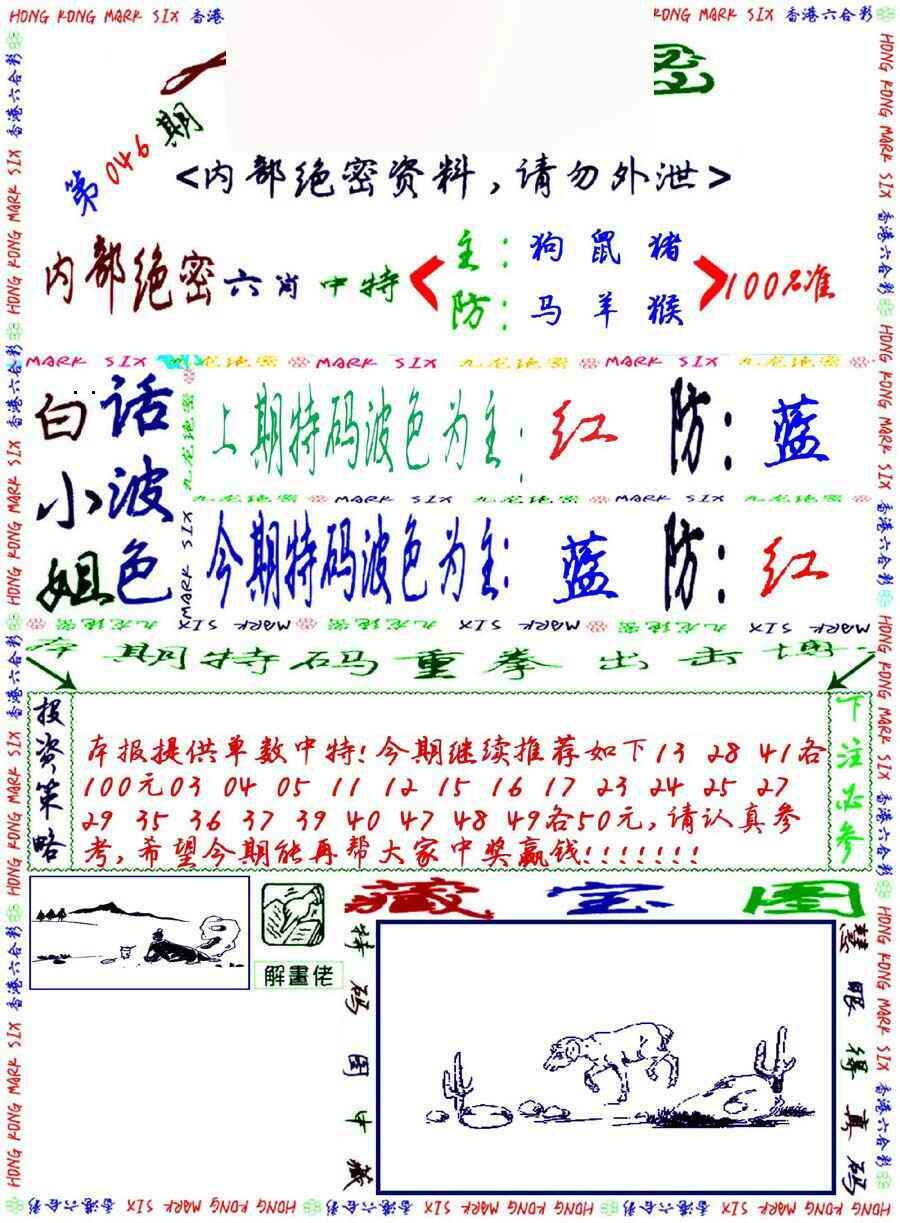 HONG KONG MARK SIX 香港
KONG MARK SIX 香港六合彩
第046期
<内部绝密资料,请勿外泄>
内部绝密六肖中特
主:狗鼠猪
防:马羊猴
100%准
MARK SIX 九龙绝密 MARK SIX 九龙绝密 MARK SIX 九龙绝密
白话
小波
姐色
上期特码波色为主:红 防:蓝
九龙绝密 MARK SIX 九龙绝密 MARK SIX 九龙绝密
今期特码波色为主:蓝 防:红
九龙绝密 MARK SIX 九龙绝密 MARK SIX 九龙绝密 MARK SIX
本期特码重拳出击博
投资策略
本报提供单数中特!今期继续推荐如下13 28 41各
100元03 04 05 11 12 15 16 17 23 24 25 27
29 35 36 37 39 40 47 48 49各50元,请认真参
考,希望今期能再帮大家中奖赢钱!!!!!!!
下注必参
解畫佬
藏宝图
特码图中藏
慧眼得真码
HONG KONG MARK SIX 香港六合彩